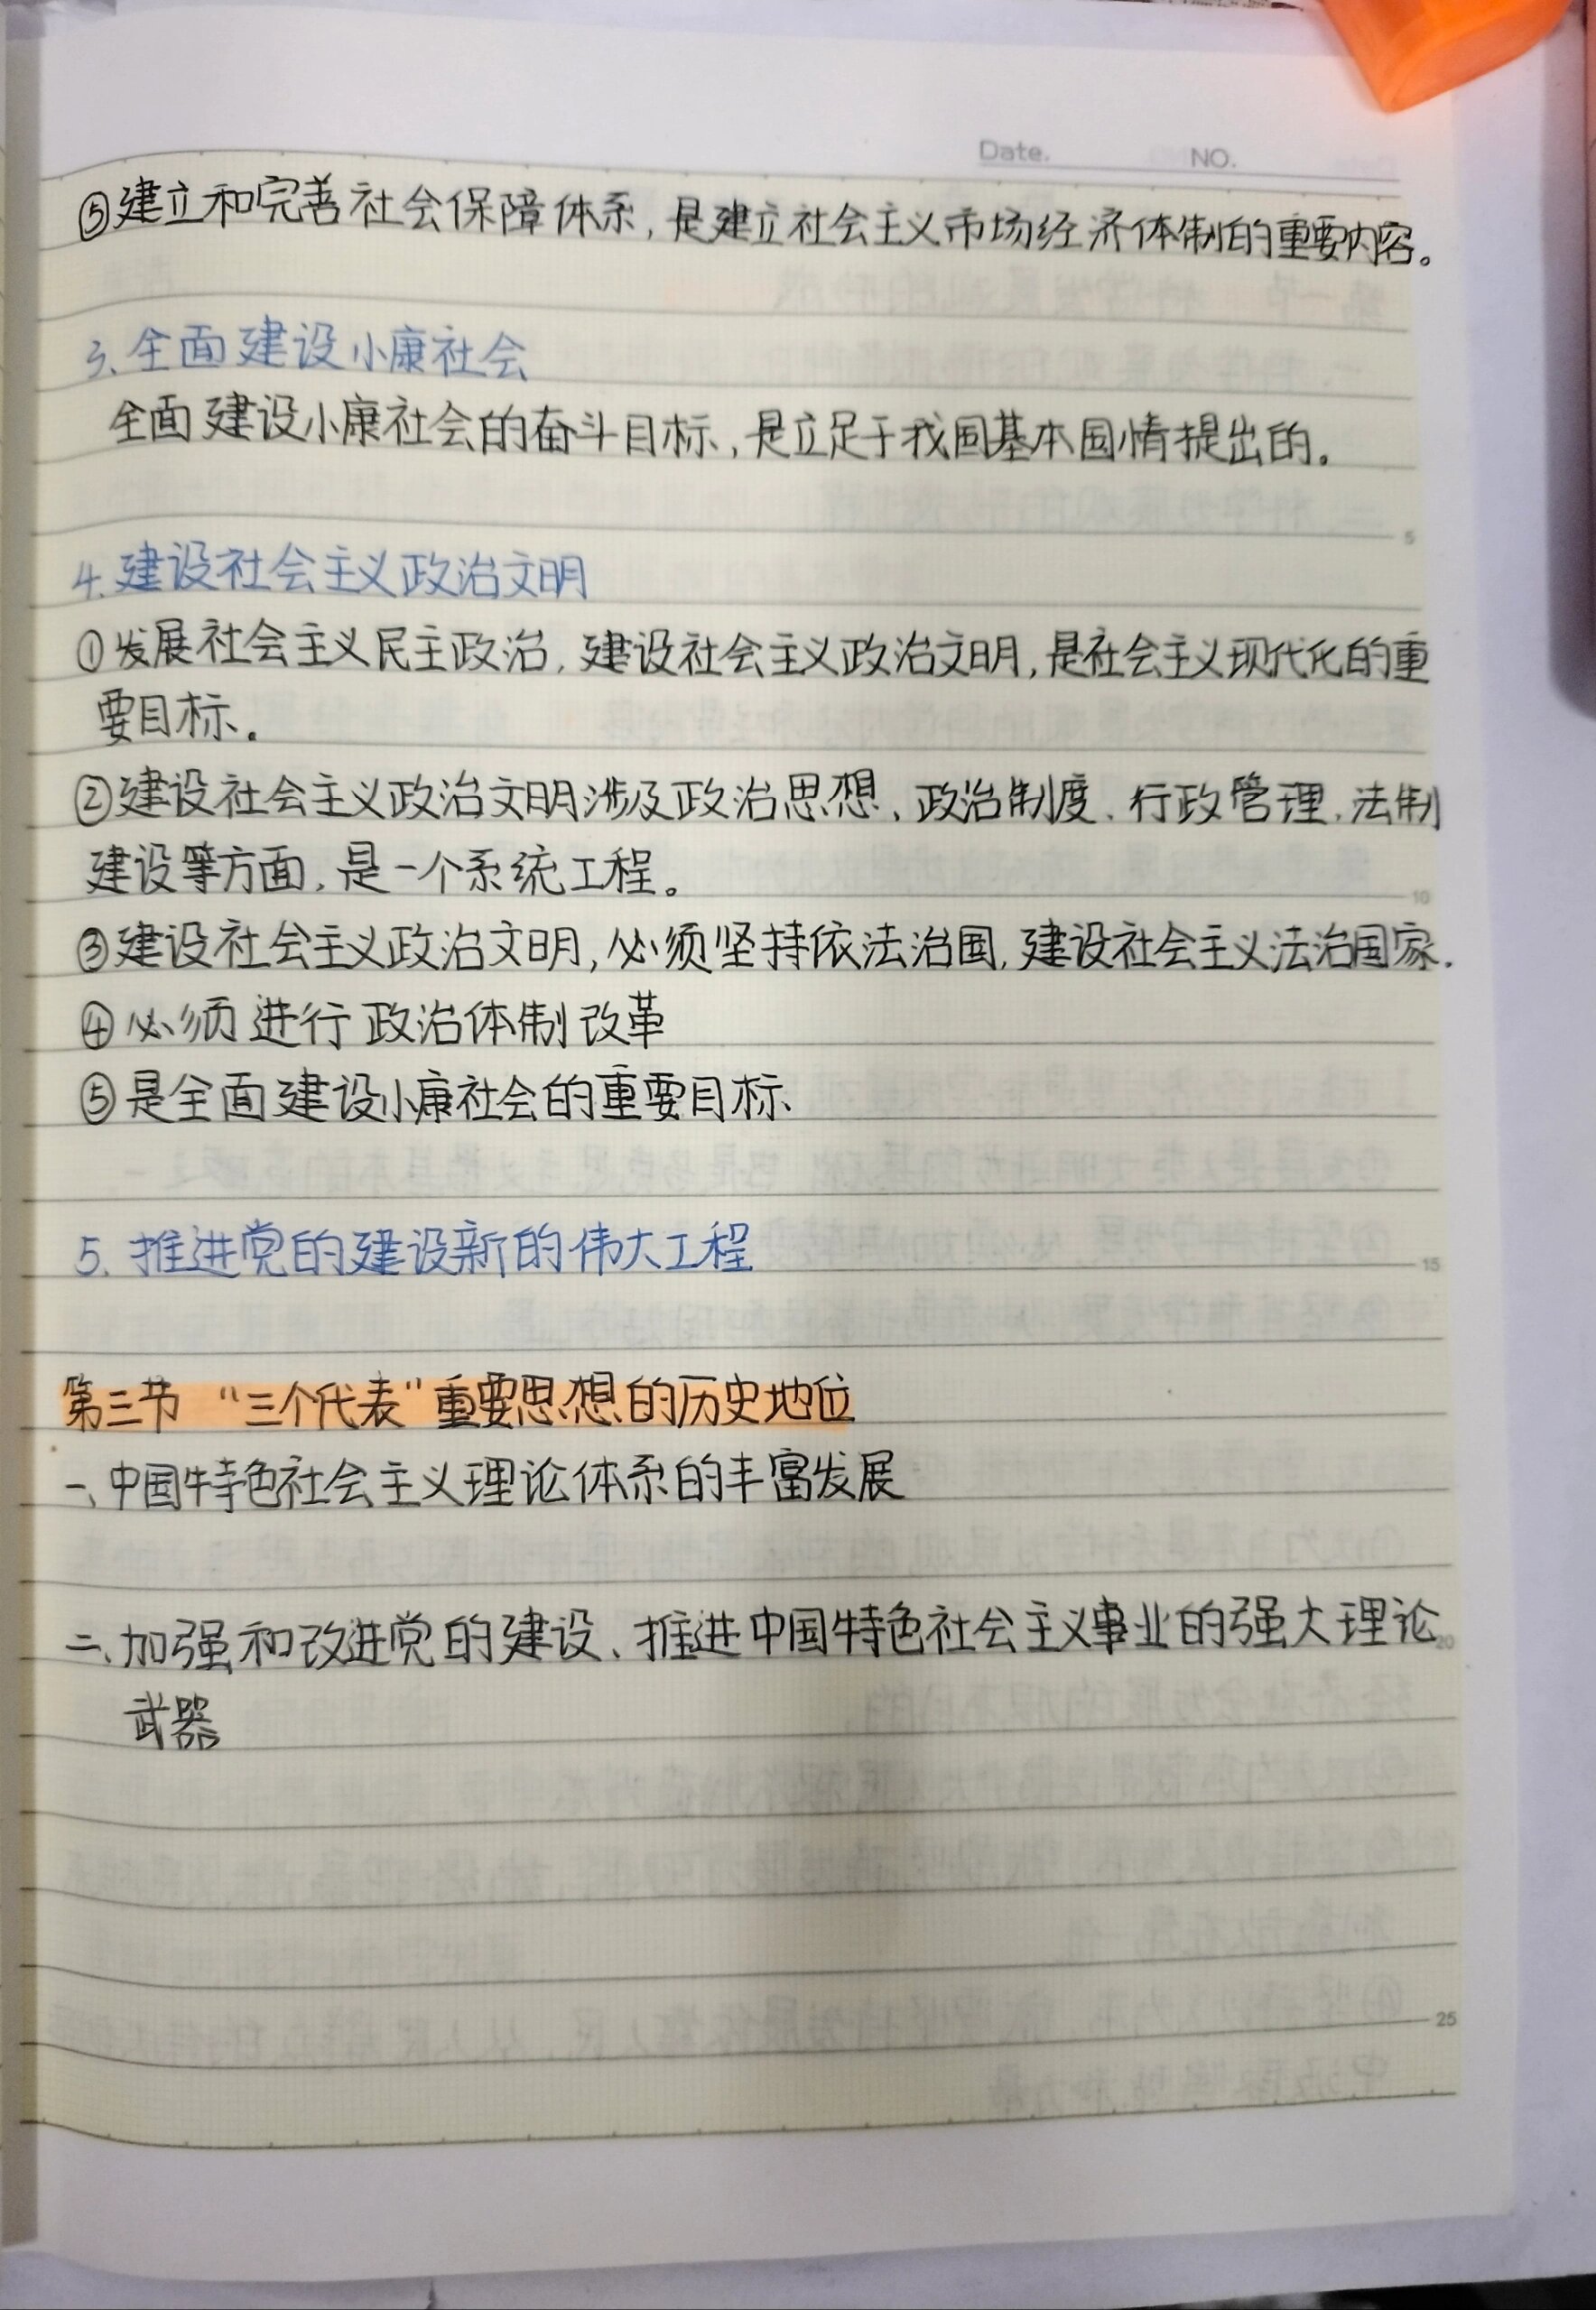 Date. NO.
⑤建立和完善社会保障体系,是建立社会主义市场经济体制的重要内容。
3、全面建设小康社会
全面建设小康社会的奋斗目标,是立足于我国基本国情提出的。
5
4.建设社会主义政治文明
①发展社会主义民主政治,建设社会主义政治文明,是社会主义现代化的重
要目标。
②建设社会主义政治文明涉及政治思想、政治制度、行政管理、法制
建设等方面,是一个系统工程。
10
③建设社会主义政治文明,必须坚持依法治国,建设社会主义法治国家.
④必须进行政治体制改革
⑤是全面建设小康社会的重要目标
5、推进党的建设新的伟大工程
15
第三节 “三个代表”重要思想的历史地位
一、中国特色社会主义理论体系的丰富发展
二、加强和改进党的建设、推进中国特色社会主义事业的强大理论
20
武器
25